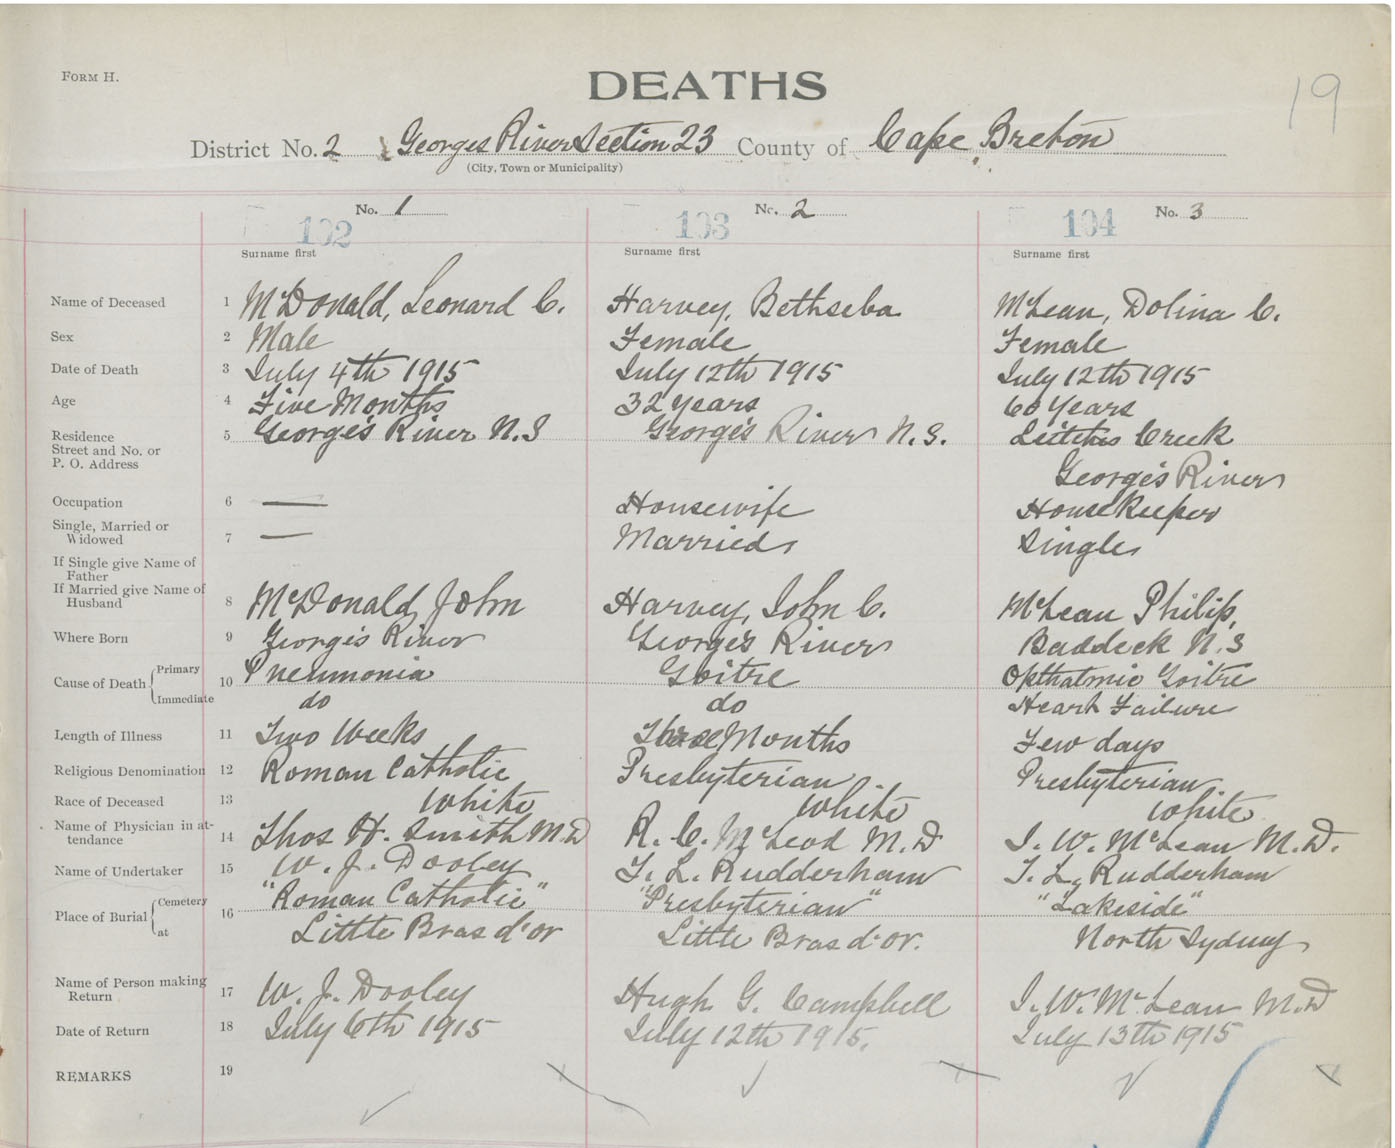 FORM H.
DEATHS
19
District No. 2 Georges River Section 23 County of Cape Breton
(City, Town or Municipality)
No. 1 No. 2 No. 3
102 103 104
Surname first Surname first Surname first
Name of Deceased 1 McDonald, Leonard C. Harvey, Bethseba McLean, Dolina C.
Sex 2 Male Female Female
Date of Death 3 July 4th 1915 July 12th 1915 July 12th 1915
Age 4 Five Months 32 Years 60 Years
Residence 5 George's River N.S George's River N.S. Leitches Creek
Street and No. or
P. O. Address George's River
Occupation 6 — Housewife Housekeeper
Single, Married or
Widowed 7 — Married Single
If Single give Name of
Father
If Married give Name of
Husband 8 McDonald, John Harvey, John C. McLean Philip,
Where Born 9 George's River George's River Baddeck N.S
Cause of Death Primary 10 Pneumonia Goitre Opthalmic Goitre
Immediate do do Heart Failure
Length of Illness 11 Two Weeks Three Months Few days
Religious Denomination 12 Roman Catholic Presbyterian Presbyterian
Race of Deceased 13 White White White
Name of Physician in at-
tendance 14 Thos H. Smith M.D R. C. McLeod M.D J. W. McLean M.D.
Name of Undertaker 15 W. J. Dooley T. L. Rudderham T. L. Rudderham
Place of Burial Cemetery 16 "Roman Catholic" "Presbyterian" "Lakeside"
at Little Bras d'or Little Bras d'or. North Sydney
Name of Person making
Return 17 W. J. Dooley Hugh G. Campbell J. W. McLean M.D
Date of Return 18 July 6th 1915 July 12th 1915. July 13th 1915
REMARKS 19